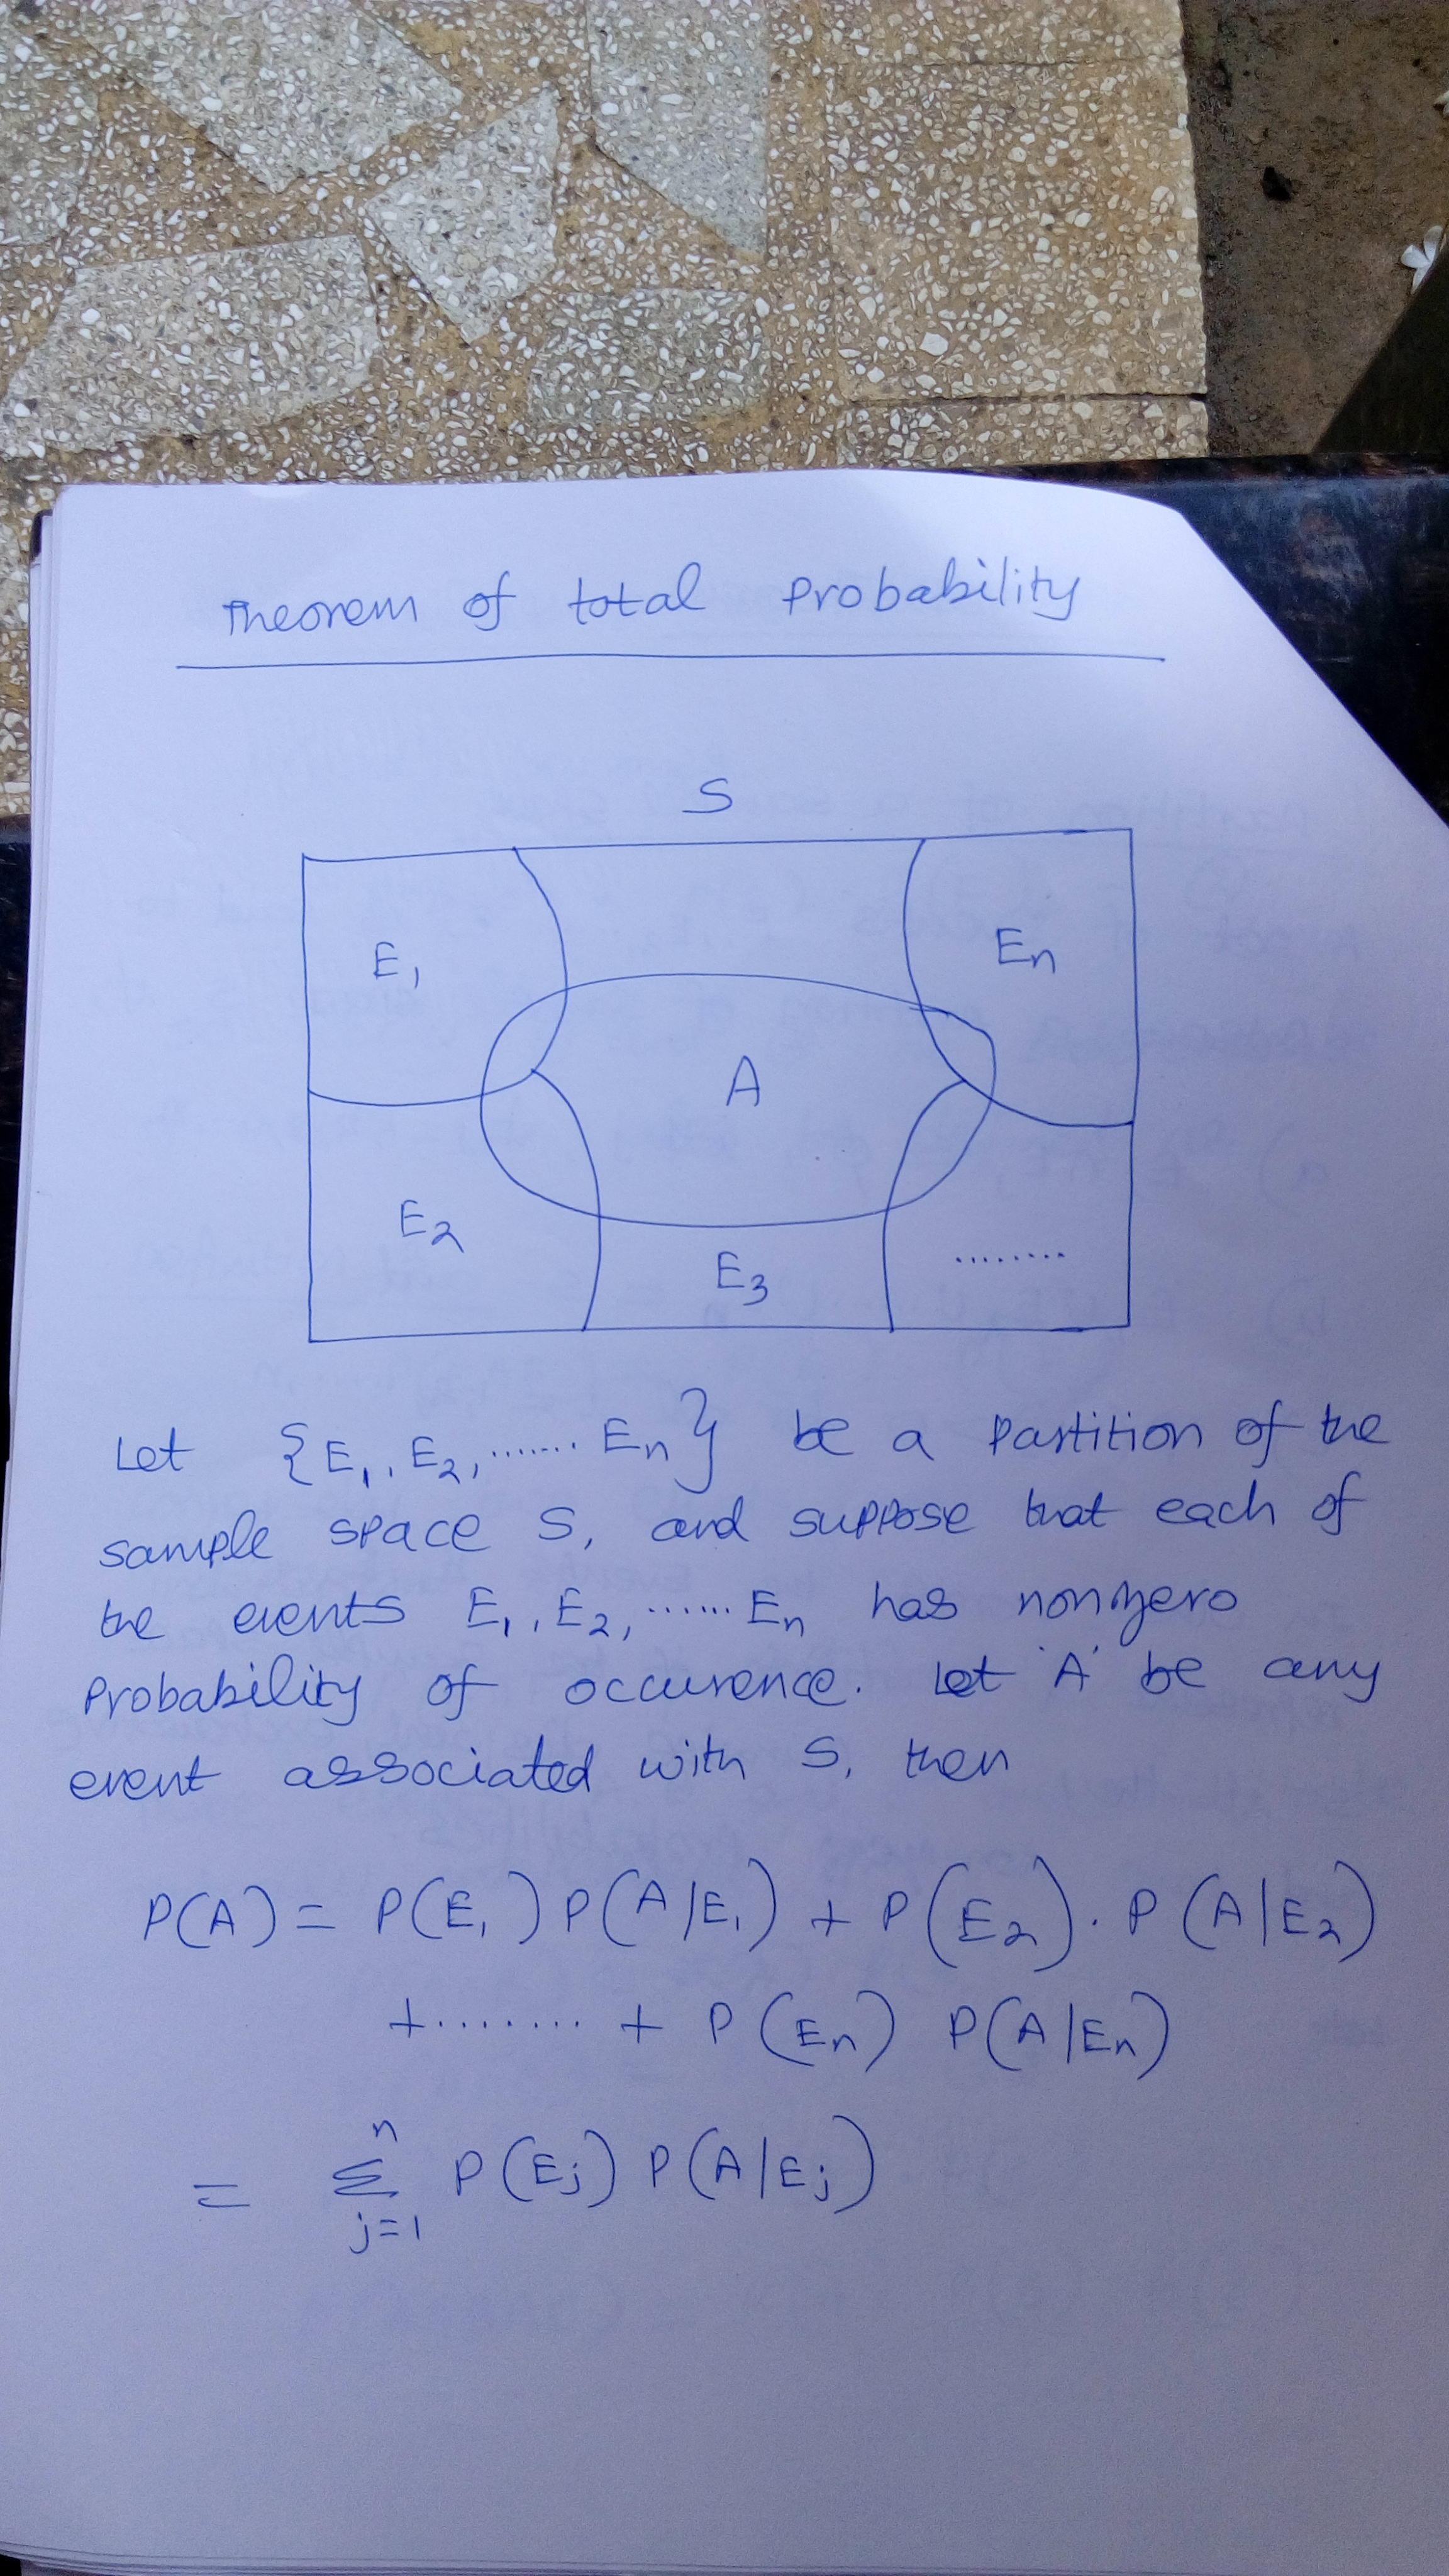 Theorem of total Probability
S
E1
En
A
E2
E3
........
Let {E1, E2, ....... En} be a Partition of the
sample space S, and suppose that each of
the events E1, E2, ...... En has nonzero
Probability of occurence. Let 'A' be any
event associated with S, then
P(A) = P(E1) P(A|E1) + P(E2). P(A|E2)
+ ........ + P(En) P(A|En)
n
= Σ P(Ej) P(A|Ej)
j=1